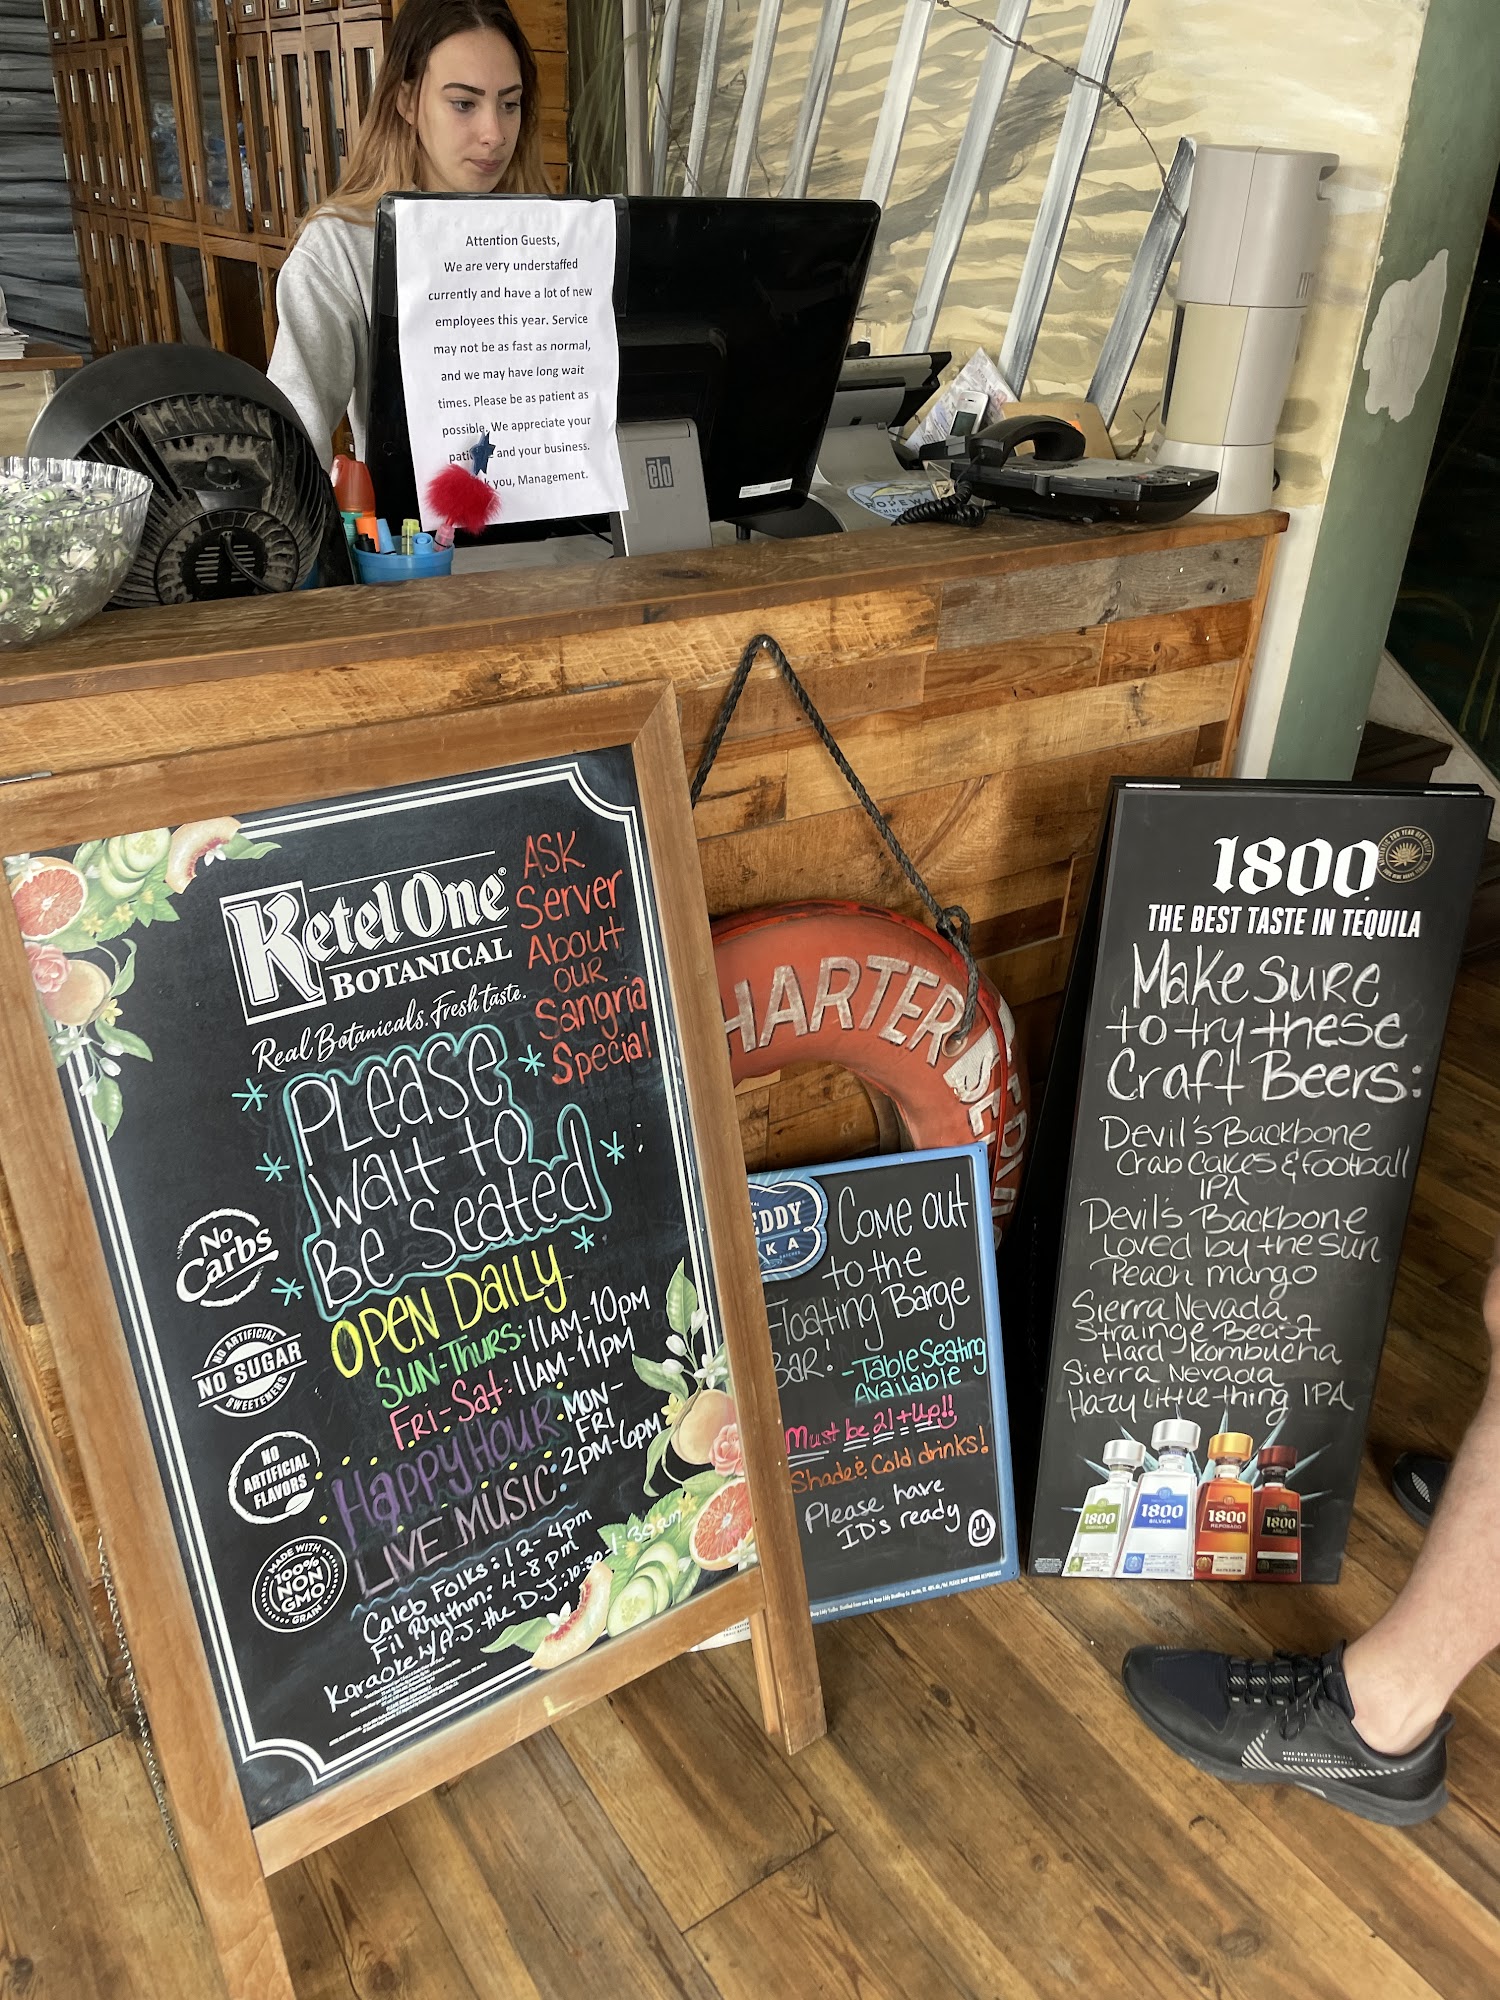 Attention Guests,
We are very understaffed
currently and have a lot of new
employees this year. Service
may not be as fast as normal,
and we may have long wait
times. Please be as patient as
possible. We appreciate your
and your business.
you, Management.
elo
Ketel One
BOTANICAL
Real Botanicals. Fresh taste.
ASK
Server
About
OUR
Sangria
Special
Please
wait to
Be Seated
OPEN DAILY
SUN-THURS: 11AM-10PM
Fri-Sat: 11AM-11PM
Happy Hour: MON-
FRI
2PM-6PM
LIVE MUSIC:
Caleb Folks: 12-4pm
Fil Rhythm: 4-8pm
Karaoke w/A-J-the D.J.: 10:30-1:30am
No
Carbs
NO ARTIFICIAL
NO SUGAR
SWEETENERS
NO
ARTIFICIAL
FLAVORS
MADE WITH
100%
NON
GMO
GRAIN
HARTER
EDDY
KA
Come out
to the
Floating Barge
BAR!
-Table Seating
Available
Must be 21+up!!
Shade & Cold drinks!
Please have
ID's ready
1800
THE BEST TASTE IN TEQUILA
Make Sure
to try these
Craft Beers:
Devil's Backbone
Crab Cakes & Football
IPA
Devil's Backbone
Loved by the Sun
Peach mango
Sierra Nevada
Strainge Beast
Hard Kombucha
Sierra Nevada
Hazy Little thing IPA
1800
COCONUT
1800
SILVER
1800
REPOSADO
1800
AÑEJO